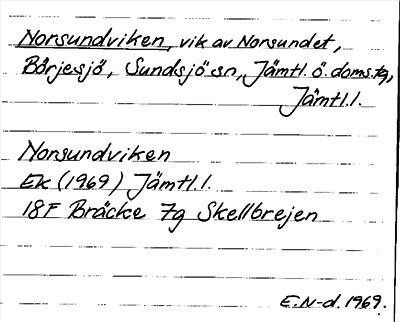 Norsundviken, vik av Norsundet,
Börjesjö, Sundsjö sn, Jämtl. ö. doms.tg,
Jämtl.l.
Norsundviken
Ek (1969) Jämtl.l.
18F Bräcke 7g Skellbrejen
E.N-d. 1969.